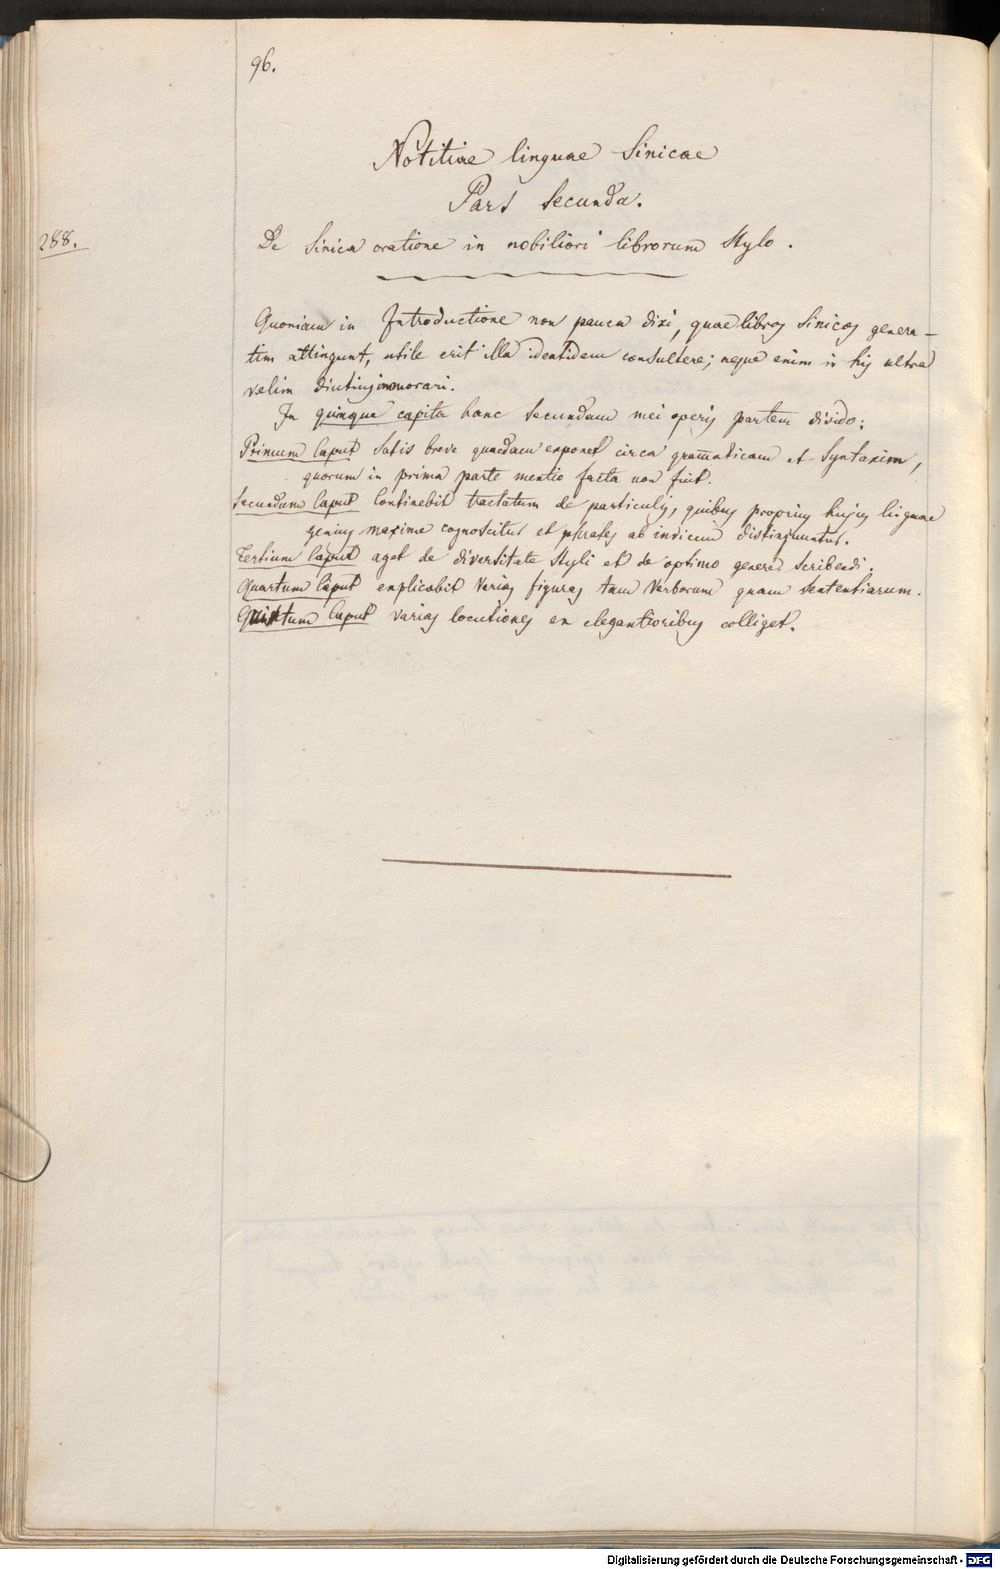 96.
Notitiae linguae Sinicae
Pars Secunda.
288.
De Sinica oratione in nobiliori librorum Stylo.
Quoniam in Introductione non pauca dixi, quae libros Sinicos genera-
tim attingunt, utile erit illa identidem consultere; neque enim in his ultra
velim diutius immorari.
In quinque capita hanc secundam mei operis partem divido:
Primum Caput satis breve quaedam exponet circa grammaticam et Syntaxim,
quorum in prima parte mentio facta non fuit.
Secundum Caput Continebit tractatum de particulis, quibus proprius hujus linguae
genius maxime cognoscitur et phrases ab invicem distinguuntur.
Tertium Caput aget de diversitate Styli et de optimo genere scribendi.
Quartum Caput explicabit Varias figuras tam Verborum quam Sententiarum.
Quintum Caput varias locutiones ex elegantioribus colliget.
Digitalisierung gefördert durch die Deutsche Forschungsgemeinschaft - DFG